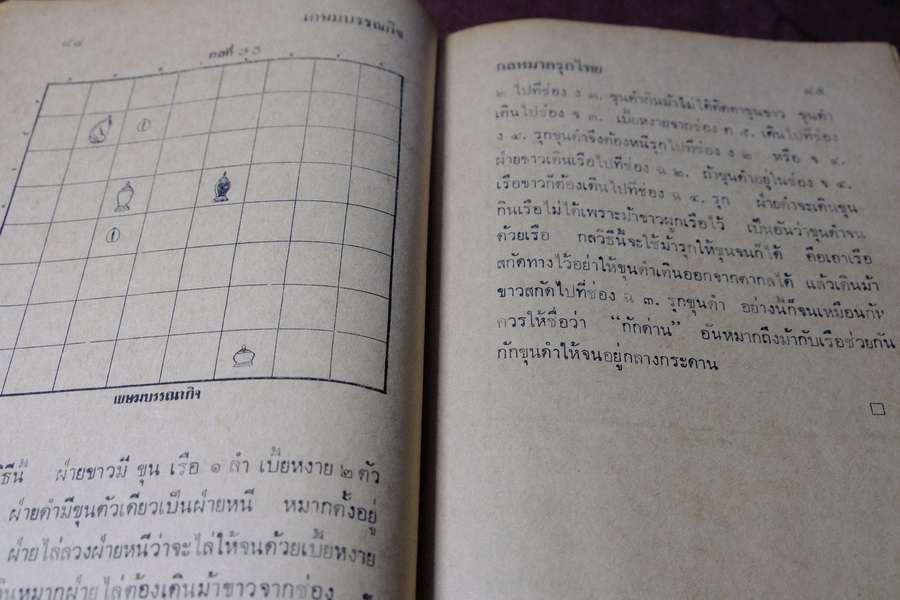 เกษมบรรณกิจ
๘๔
กลที่ ๖๖
เขษมบรรณากิจ
วิธีนี้ ฝ่ายขาวมี ขุน เรือ ๑ ลำ เบี้ยหงาย ๒ ตัว
ฝ่ายดำมีขุนตัวเดียวเป็นฝ่ายหนี หมากตั้งอยู่
ฝ่ายไล่ลวงฝ่ายหนีว่าจะไล่ให้จนด้วยเบี้ยหงาย
เดินหมากฝ่ายไล่ต้องเดินม้าขาวจากช่อง
กลหมากรุกไทย
๘๕
๒ ไปที่ช่อง ง ๓. ขุนดำกินม้าไม่ได้ติดตาขุนขาว ขุนดำ
เดินไปที่ช่อง จ ๓. เบี้ยหงายจากช่อง ค ๕. เดินไปที่ช่อง
ง ๔. รุกขุนดำจึงต้องหนีรุกไปที่ช่อง ง ๒ หรือ จ ๔.
ฝ่ายขาวเดินเรือไปที่ช่อง ฉ ๒. ถ้าขุนดำอยู่ในช่อง จ ๔.
เรือขาวก็ต้องเดินไปที่ช่อง ฉ ๔. รุก ฝ่ายดำจะเดินขุน
กินเรือไม่ได้เพราะม้าขาวผูกเรือไว้ เป็นอันว่าขุนดำจน
ด้วยเรือ กลวิธีนี้จะใช้ม้ารุกให้ขุนจนก็ได้ คือเอาเรือ
สกัดทางไว้อย่าให้ขุนดำเดินออกจากตากลได้ แล้วเดินม้า
ขาวสกัดไปที่ช่อง ฉ ๓. รุกขุนดำ อย่างนี้ก็จนเหมือนกัน
ควรให้ชื่อว่า “กักด่าน” อันหมากถึงม้ากับเรือช่วยกัน
กักขุนดำให้จนอยู่กลางกระดาน